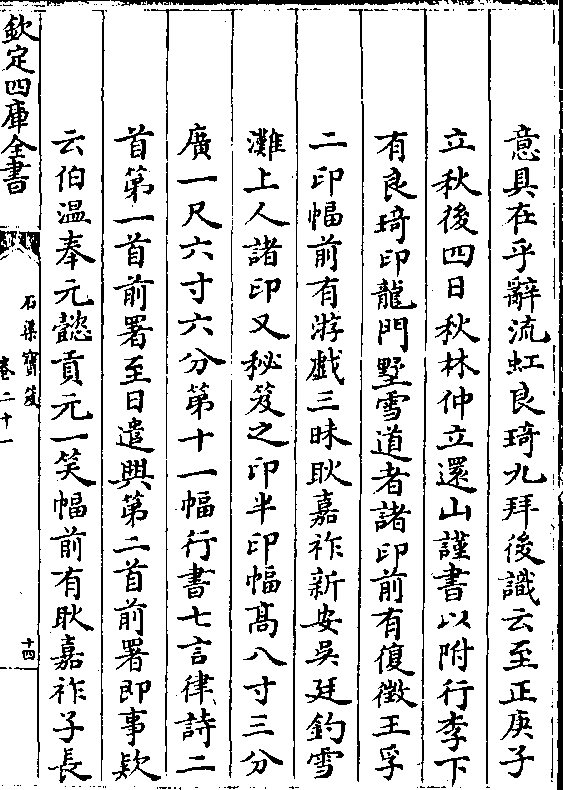 意具在乎辭流虹良琦九拜後識云至正庚子
立秋後四日秋林仲立還山謹書以附行李下
有良琦印龍門墅雪道者諸印前有復徵王孚
二印幅前有游戲三昧耿嘉祚新安吳廷釣雪
灘上人諸印又秘笈之印半印幅髙八寸三分
廣一尺六寸六分第十一幅行書七言律詩二
首第一首前署至日遣興第二首前署即事欵
云伯温奉元懿貢元一笑幅前有耿嘉祚子長
欽定四庫全書
石渠寶笈
卷二十一
十四